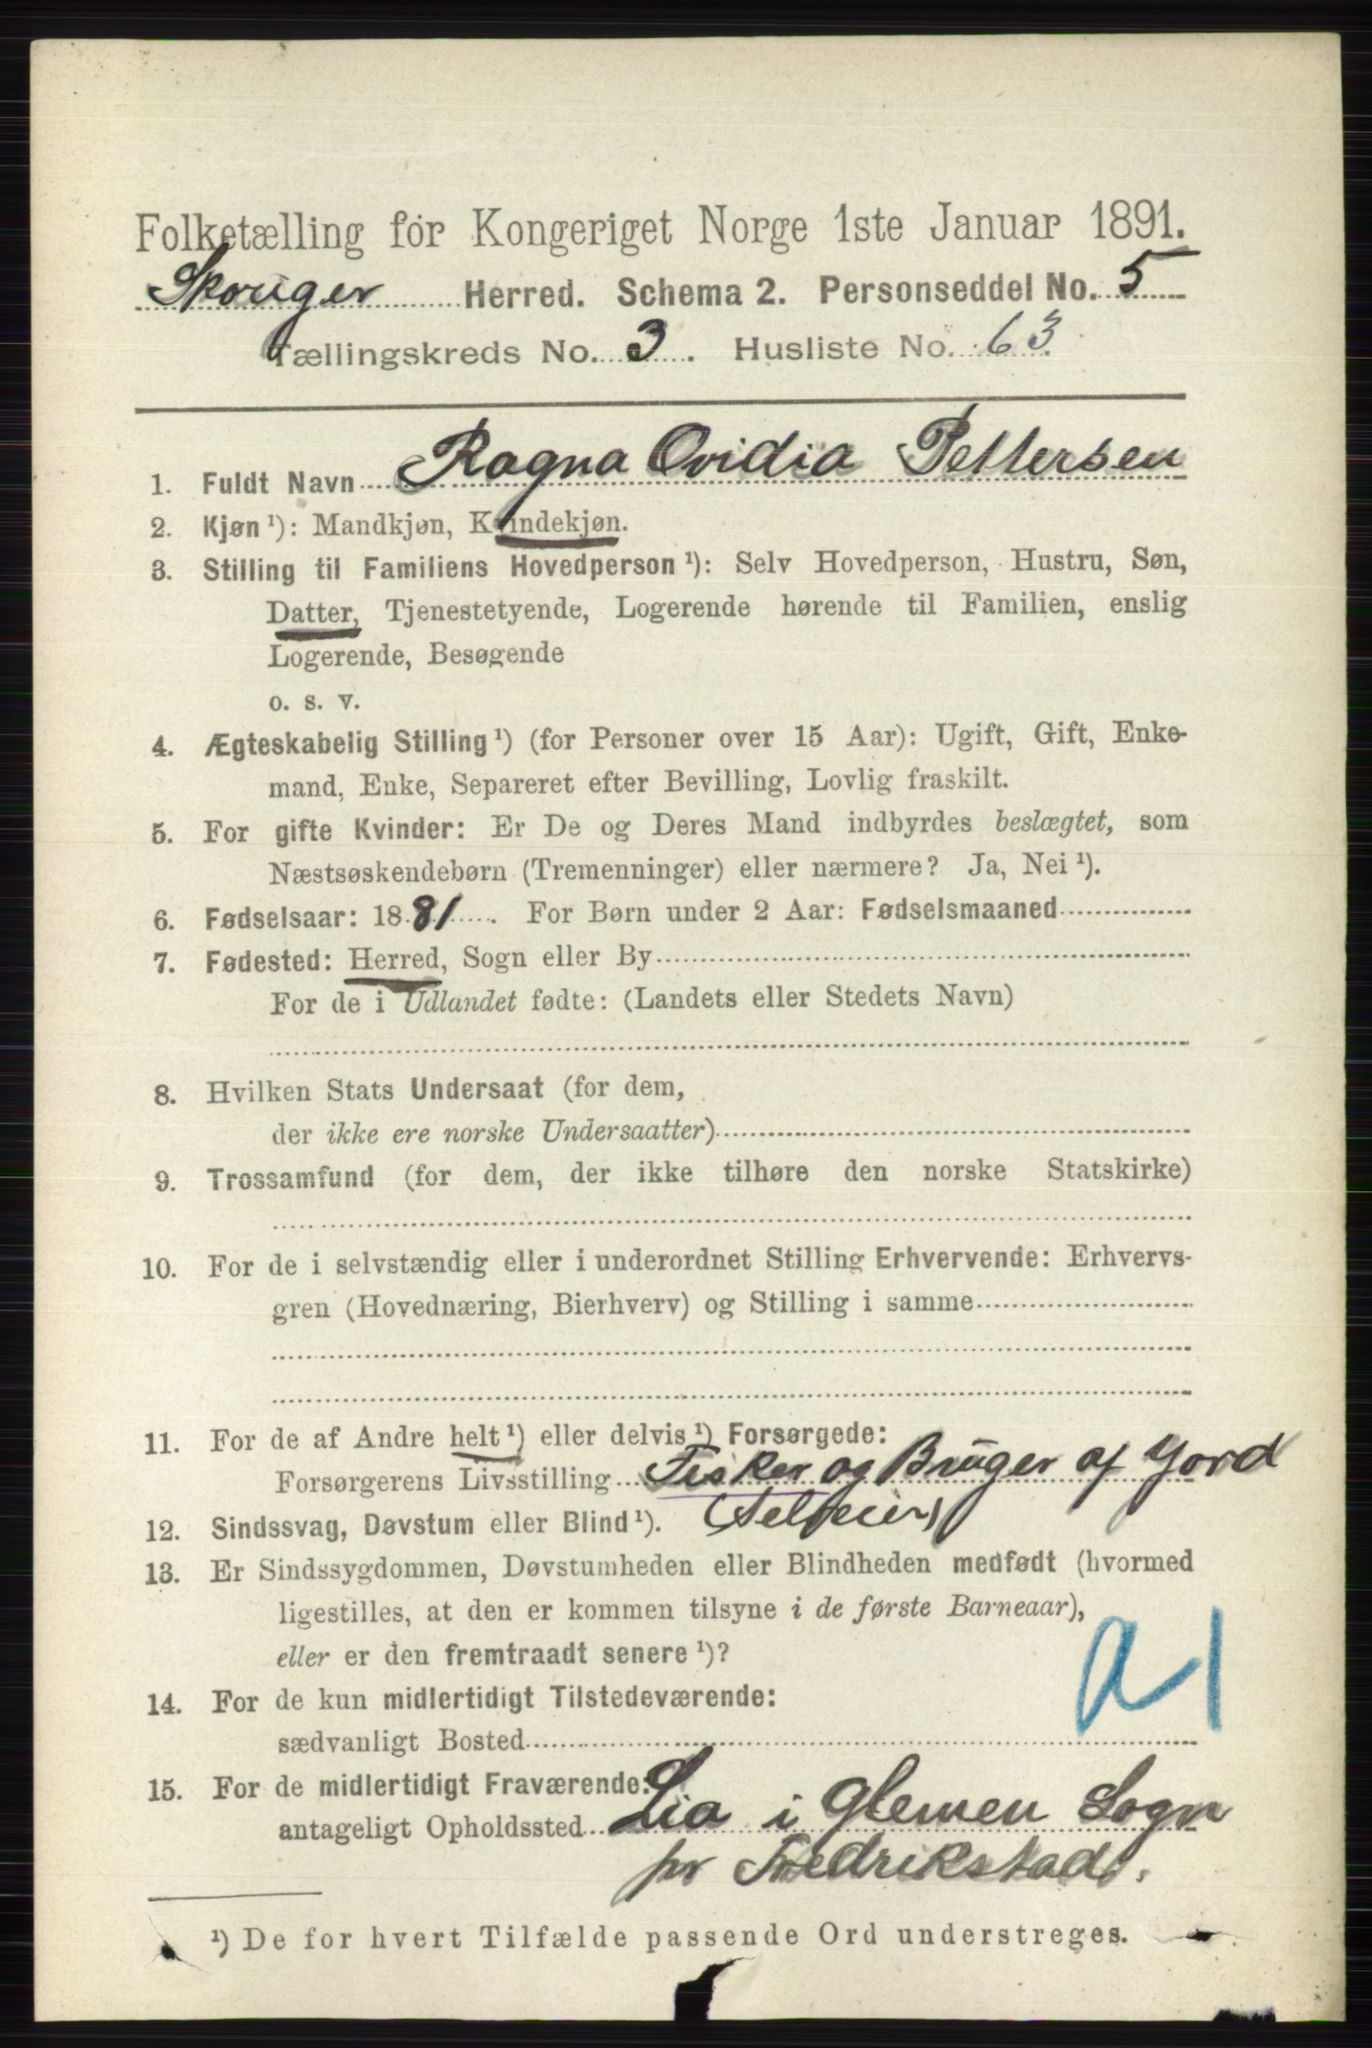 Folketælling for Kongeriget Norge 1ste Januar 1891.
Skouger Herred. Schema 2. Personseddel No. 5
Tællingskreds No. 3. Husliste No. 63
1. Fuldt Navn Ragna Ovidia Pettersen
2. Kjøn ¹): Mandkjøn, Kvindekjøn.
3. Stilling til Familiens Hovedperson ¹): Selv Hovedperson, Hustru, Søn,
Datter, Tjenestetyende, Logerende hørende til Familien, enslig
Logerende, Besøgende
o. s. v.
4. Ægteskabelig Stilling ¹) (for Personer over 15 Aar): Ugift, Gift, Enke-
mand, Enke, Separeret efter Bevilling, Lovlig fraskilt.
5. For gifte Kvinder: Er De og Deres Mand indbyrdes beslægtet, som
Næstsøskendebørn (Tremenninger) eller nærmere? Ja, Nei ¹).
6. Fødselsaar: 1881. For Børn under 2 Aar: Fødselsmaaned
7. Fødested: Herred, Sogn eller By
For de i Udlandet fødte: (Landets eller Stedets Navn)
8. Hvilken Stats Undersaat (for dem,
der ikke ere norske Undersaatter)
9. Trossamfund (for dem, der ikke tilhøre den norske Statskirke)
10. For de i selvstændig eller i underordnet Stilling Erhvervende: Erhvervs-
gren (Hovednæring, Bierhverv) og Stilling i samme
11. For de af Andre helt ¹) eller delvis ¹) Forsørgede:
Forsørgerens Livsstilling Fisker og Bruger af Jord
(Selveier)
12. Sindssvag, Døvstum eller Blind ¹).
13. Er Sindssygdommen, Døvstumheden eller Blindheden medfødt (hvormed
ligestilles, at den er kommen tilsyne i de første Barneaar),
eller er den fremtraadt senere ¹)?
a 1
14. For de kun midlertidigt Tilstedeværende:
sædvanligt Bosted
15. For de midlertidigt Fraværende:
antageligt Opholdssted Lia i Glemen Sogn
pr Fredrikstad.
¹) De for hvert Tilfælde passende Ord understreges.